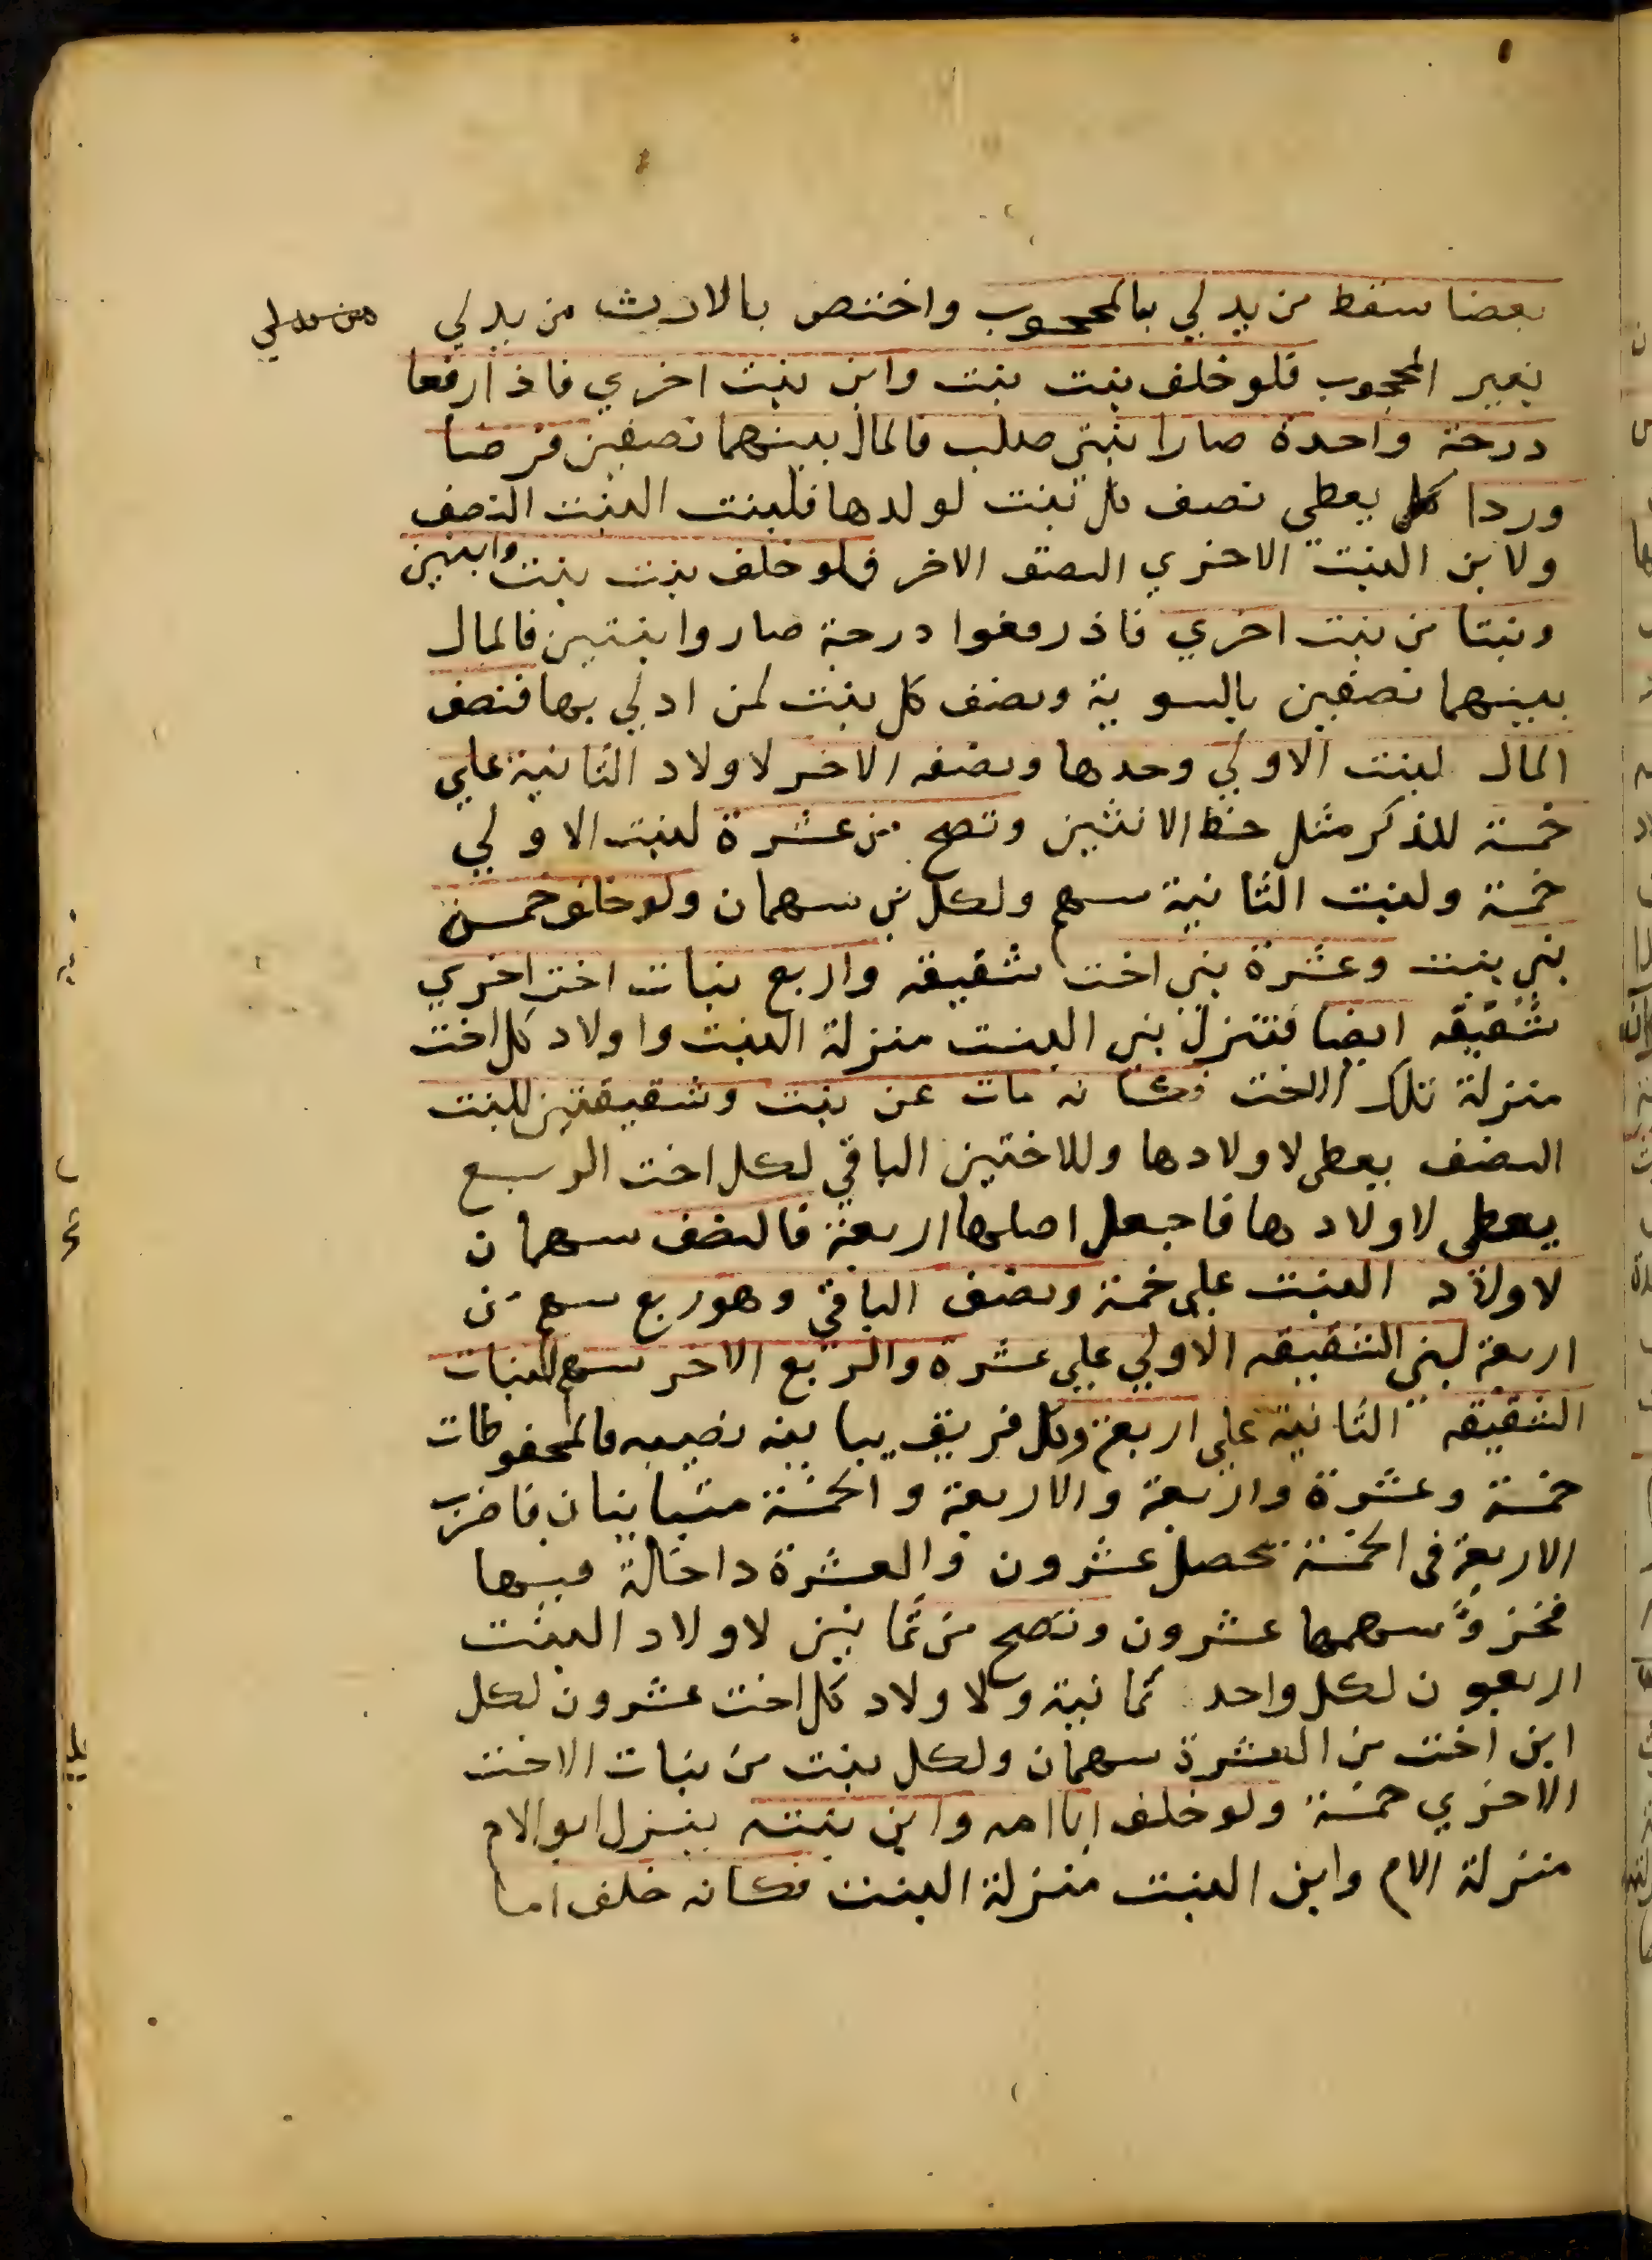 بعضا سقط من يدلي بالمحجوب واختص بالارث من يدلي
بغير المحجوب فلو خلف بنت بنت وابن بنت اخري فاذا رفعا
درجة واحدة صارا بنتي صلب فالمال بينهما نصفين فرضا
وردا كل يعطي نصف كل بنت لولدها فلبنت البنت النصف
ولابن البنت الاخري النصف الاخر فلو خلف بنت بنت وابنين
وبنتا من بنت اخري فاذ رفعوا درجة صاروا بنتين فالمال
بينهما نصفين بالسوية ونصف كل بنت لمن ادلي بها فنصف
المال لبنت الاولي وحدها ونصفه الاخر لاولاد الثانية علي
خمسة للذكر مثل حظ الانثيين وتصح من عشرة لبنت الاولي
خمسة ولبنت الثانية سهم ولكل بن سهمان ولو خلف خمسة
بني بنت وعشرة بني اخت شقيقه واربع بنات اخت اخري
شقيقه ايضا فتنزل بني البنت منزلة البنت واولاد كل اخت
منزلة تلك الاخت فكانه مات عن بنت وشقيقتين للبنت
النصف يعطى لاولادها وللاختين الباقي لكل اخت الربع
يعطى لاولادها فاجعل اصلها اربعة فالنصف سهمان
لاولاد البنت على خمسة ونصف الباقي وهو ربع سهم من
اربعة لبني الشقيقه الاولي علي عشرة والربع الاخر سهم للبنات
الشقيقه الثانية علي اربعة وكل فريق يباينه نصيبه فالمحفوظات
خمسة وعشرة واربعة والاربعة والخمسة متباينان فاضرب
الاربعة في الخمسة تحصل عشرون والعشرة داخلة فيها
فجزؤ سهمها عشرون وتصح من ثمانين لاولاد البنت
اربعون لكل واحد ثمانية ولاولاد كل اخت عشرون لكل
ابن اخت من العشرة سهمان ولكل بنت من بنات الاخت
الاخري خمسة ولو خلف ابا امه وابن بنته ينزل ابو الام
منزلة الام وابن البنت منزلة البنت فكانه خلف اما